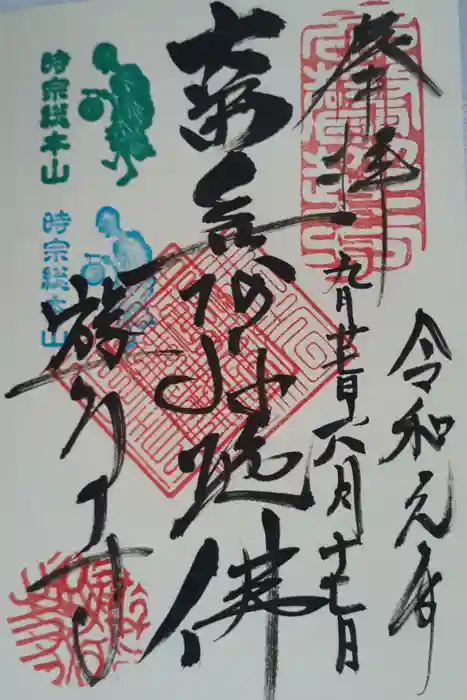 奉拝
令和元年
九月廿三日六月十七日
南無阿弥陀佛
時宗総本山
時宗総本山
遊行寺